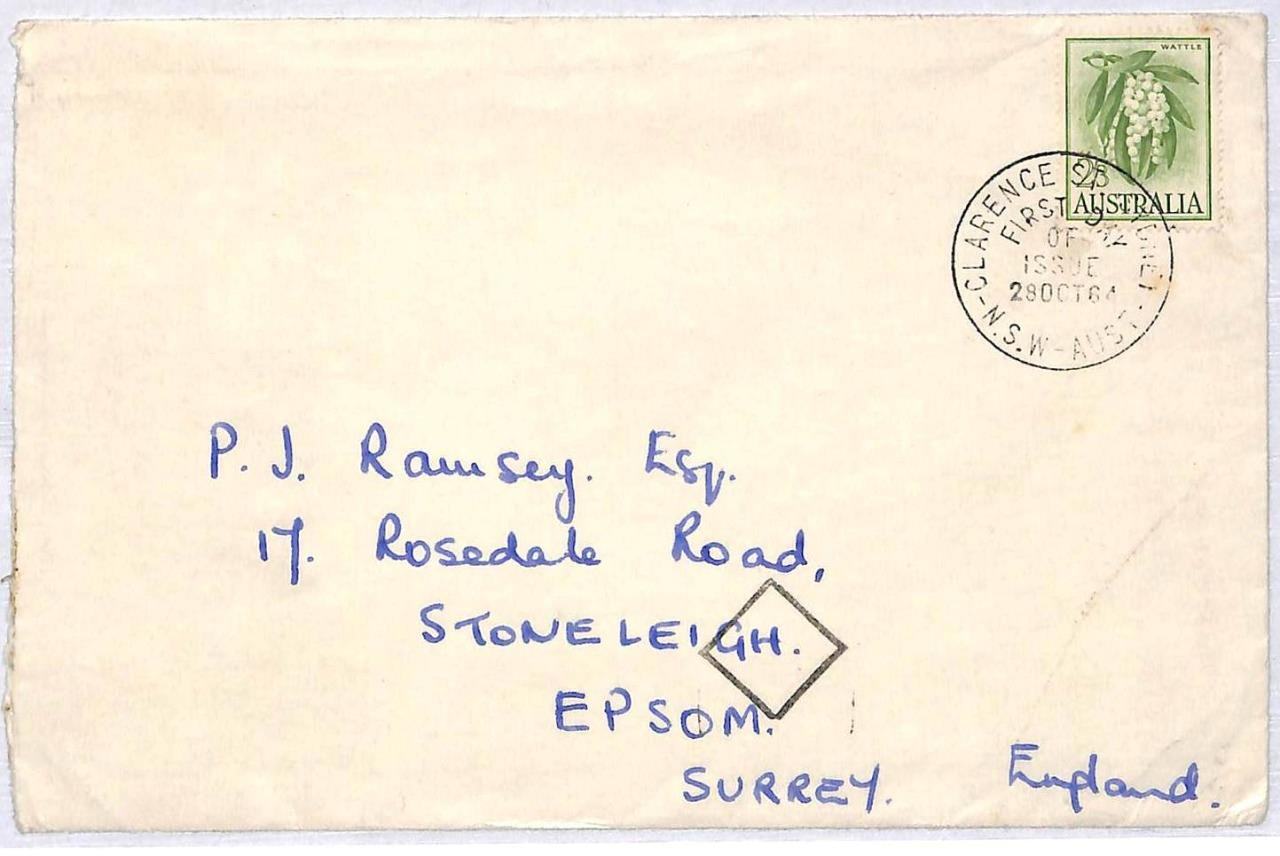 WATTLE
2/3
AUSTRALIA
CLARENCE ST
FIRST
OF
ISSUE
28OCT64
-N.S.W-AUST-
P. J. Ramsey. Esq.
17. Rosedale Road,
STONELEIGH.
EPSOM.
SURREY. England.